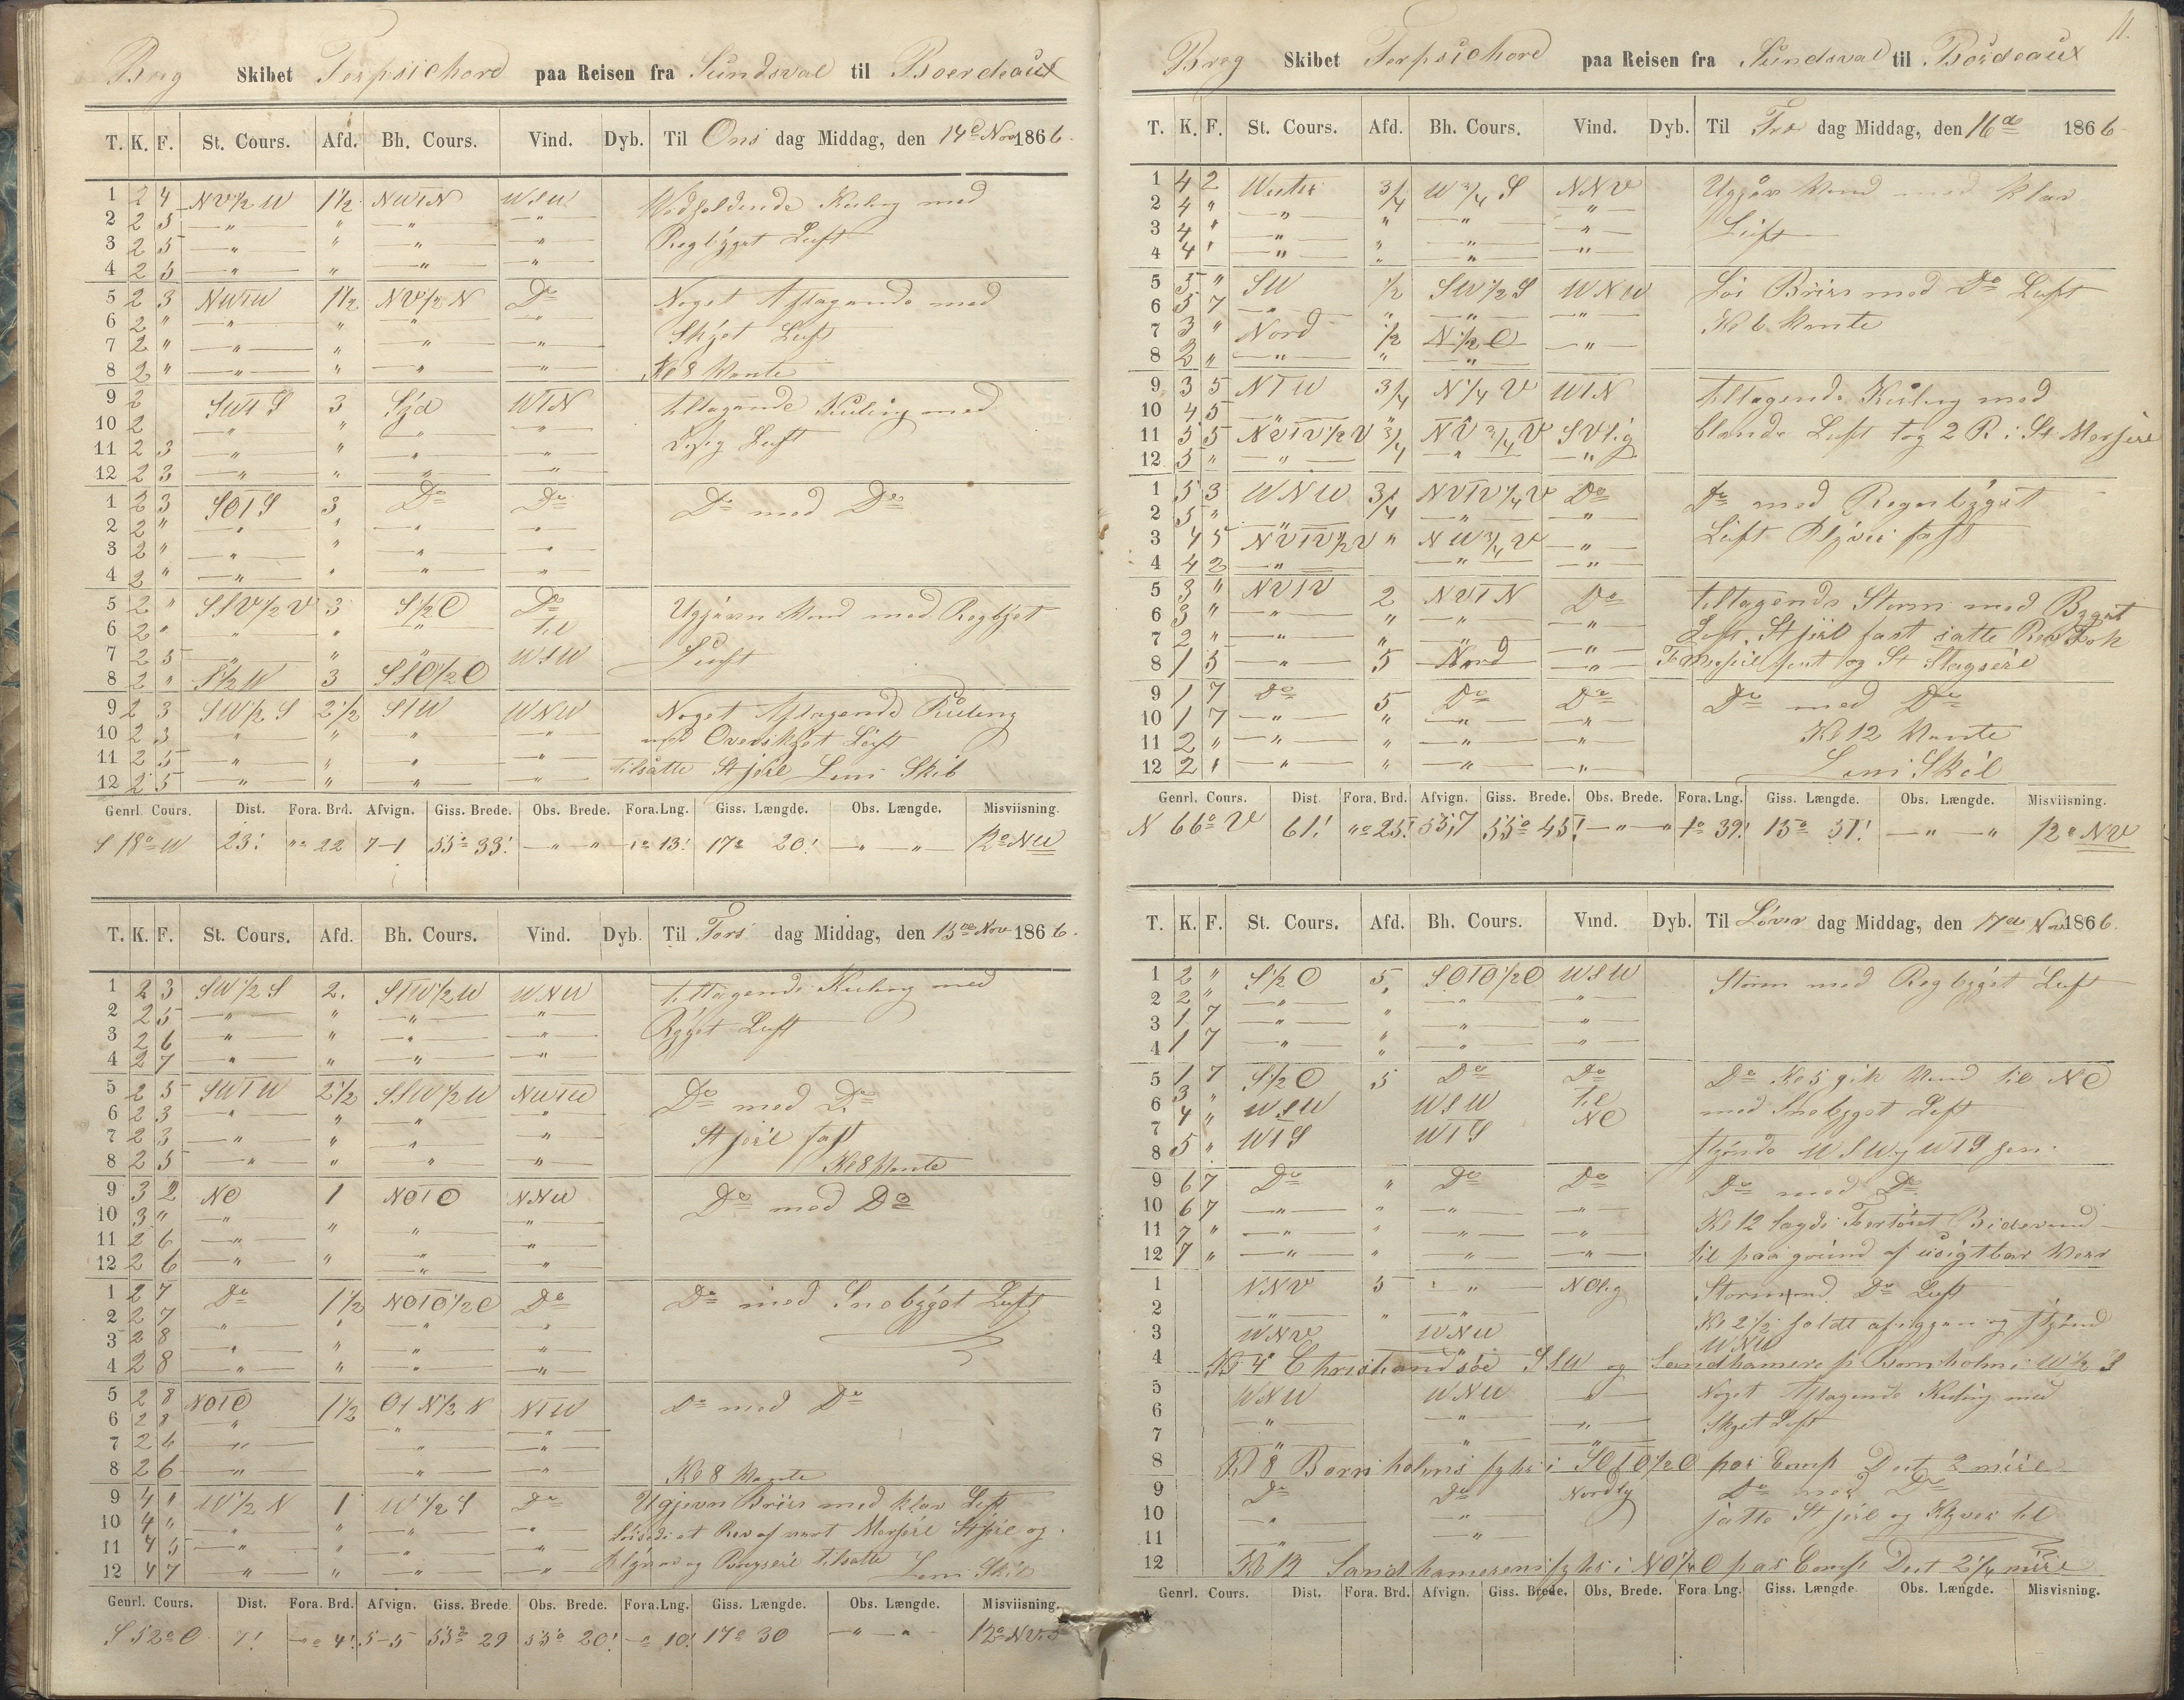 Breg Skibet Terpsichore paa Reisen fra Sundsval til Boerdeaux
T. K. F. St. Cours. Afd. Bh. Cours. Vind. Dyb. Til Ons dag Middag, den 14de Nov 1866.
1 2 4 NV½W 1½ NWTN WSW Vedholdende Kuling med
2 2 5 " " " "
3 2 5 " " " " Regbyget Luft
4 2 5 " " " "
5 2 3 NWTW 1½ NV½N Do Noget Aftagende med
6 2 " " " " "
7 2 " " " " " Skyet Luft
8 2 " " " " " Kl 8 Vente
9 2 SWTS 3 Syd WTN tiltagende Kuling med
10 2 " " " "
11 2 3 " " " " Luft
12 2 3 " " " "
1 2 3 SOTS 3 Do Do Do med Do
2 2 " " " " "
3 2 " " " " "
4 2 " " " " "
5 2 " SSV½V 3 S½O Do Ugjævn Vind med Regbyet
6 2 " " " " til
7 2 5 " " " WSW Luft
8 2 " S½W 3 SSO½O
9 2 3 SW½S 2½ STW WNW Noget Aftagende Kuling
10 2 3 " " " " med Overskyet Luft
11 2 5 " " " " tilsatte St Seil Lens Skib
12 2 5 " " " "
Genrl. Cours. Dist. Fora. Brd. Afvign. Giss. Brede. Obs. Brede. Fora.Lng. Giss. Længde. Obs. Længde. Misviisning.
S 18° W 23! "° 22 7-1 55° 33! " " "° 13! 17° 20! " " 12° NW
T. K. F. St. Cours. Afd. Bh. Cours. Vind. Dyb. Til Tors dag Middag, den 15de Nov 1866.
1 2 3 SW½S 2. STW½W WNW tiltagende Kuling med
2 2 5 " " " "
3 2 6 " " " " Byget Luft
4 2 7 " " " "
5 2 5 SWTW 2½ SSW½W NWTW Do med Do
6 2 3 " " " "
7 2 3 " " " " St Seil fast
8 2 5 " " " " Kl 8 Vente
9 3 2 NO 1 NOTO NNW Do med Do
10 3 " " " " "
11 2 6 " " " "
12 2 6 " " " "
1 2 7 Do 1½ NOTO½O Do Do med Snebyget Luft
2 2 7 " " " "
3 2 8 " " " "
4 2 8 " " " "
5 2 8 NOTO 1½ OTN½N NTW Do med Do
6 2 8 " " "
7 2 6 " " "
8 2 6 " " " Kl 8 Vente
9 4 1 W½N 1 W½S Do Ugjevn Briis med klar Luft
10 4 " " " " " Löisede et Rev af vort Mersseil St Seil og
11 4 5 " " " " Klyver og tilsatte Lens Skib
12 4 7 " " " "
Genrl. Cours. Dist. Fora. Brd. Afvign. Giss. Brede. Obs. Brede. Fora.Lng. Giss. Længde. Obs. Længde. Misviisning.
S 52° O 7! "° 4! 5-5 55° 29 55° 20! "° 10! 17° 30 " " 12° NV
11.
Breg Skibet Terpsichore paa Reisen fra Sundsval til Bordeaux
T. K. F. St. Cours. Afd. Bh. Cours. Vind. Dyb. Til Fre dag Middag, den 16de 1866
1 4 2 Wester ¾ W¾S NNV Ugjævn Vind med klar
2 4 " " " " "
3 4 " " " " " Luft
4 4 " " " " "
5 5 " SW ½ SW½S WNW Lös Briis med Do Luft
6 5 7 " " " "
7 3 " Nord ½ N½O " Kl 6 Vente
8 3 " " " "
9 3 5 NTW ¾ N¼V WTN tiltagende Kuling med
10 4 5
11 5 5 NVTV½V ¾ NV¾V SVlig blande Luft tog 2 R i St Mersseil
12 5 " " " "
1 5 3 WNW ¾ NVTV¼V Do Do med Regnbyget
2 5 " " " "
3 4 5 NVTV½V " NW¾V " Luft Klyver fast
4 4 2 " " "
5 3 " NVTV 2 NVTN Do tiltagende Storm med Byget
6 3 " " " " " Luft. St seil fast satte Rev Fok
7 2 " " " " " For Mersseil fast og St Stagseil
8 1 5 " 5 Nord "
9 1 7 Do 5 Do Do Do med Do
10 1 7 " " " "
11 2 " " " " " Kl 12 Vente
12 2 " " " " " Lens Skib
Genrl. Cours. Dist. Fora. Brd. Afvign. Giss. Brede. Obs. Brede. Fora.Lng. Giss. Længde. Obs. Længde. Misviisning.
N 66° V 61! "° 25! 55,7 55° 45! " " 1° 39! 15° 51! " " 12° NV
T. K. F. St. Cours. Afd. Bh. Cours. Vind. Dyb. Til Löver dag Middag, den 17de Nov 1866.
1 2 " S½O 5 SOTO½O WSW Storm med Regbyget Luft
2 2 " " " " "
3 1 7 " " " "
4 1 7 " " " "
5 1 7 S½O 5 Do Do Do Kl 5 gik Vind til NO
6 3 " WSW WSW til med Snebyget Luft
7 4 " NO
8 5 " WTS WTS styrede WSW og WTS hen
9 6 7 Do " Do Do Do med Do
10 6 7 " " " " Kl 12 lagde Fartöiet Bidevind
11 7 " " " " "
12 7 " " " " " til paa grund af usigtbar Veir
1 NNV 5 " NOlig Storm med Do Luft
2 " " " Kl 2½ holdt af igjen og styred
3 WNV WNW WNW
4 Kl 4 Christiansöe SSW og Sandhamere p Bornholm i W½S
5 WNW WNW " Noget Aftagende Kuling med
6 " " " Skyet Luft
7 " " "
8 Kl 8 Bornholms fyhr i SOTO½O paa Comp Dist 2 mile
9 Do Do Nordlig Do med Do
10 " " satte St Seil og Klyver til
11 " "
12 Kl 12 Sandhamerens fyhr i NO¼O paa Comp Dist 2¼ mile
Genrl. Cours. Dist. Fora. Brd. Afvign. Giss. Brede. Obs. Brede. Fora Lng. Giss. Længde. Obs. Længde. Misvisning.